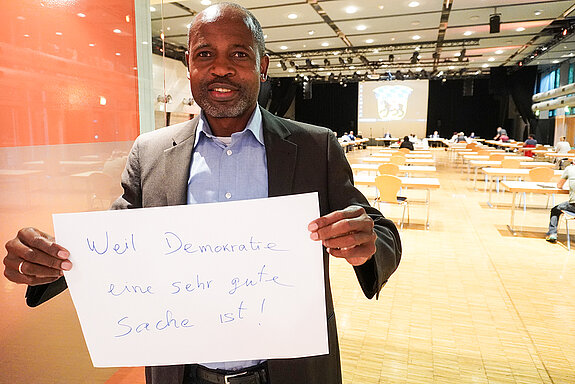 Weil Demokratie
eine sehr gute
Sache ist!